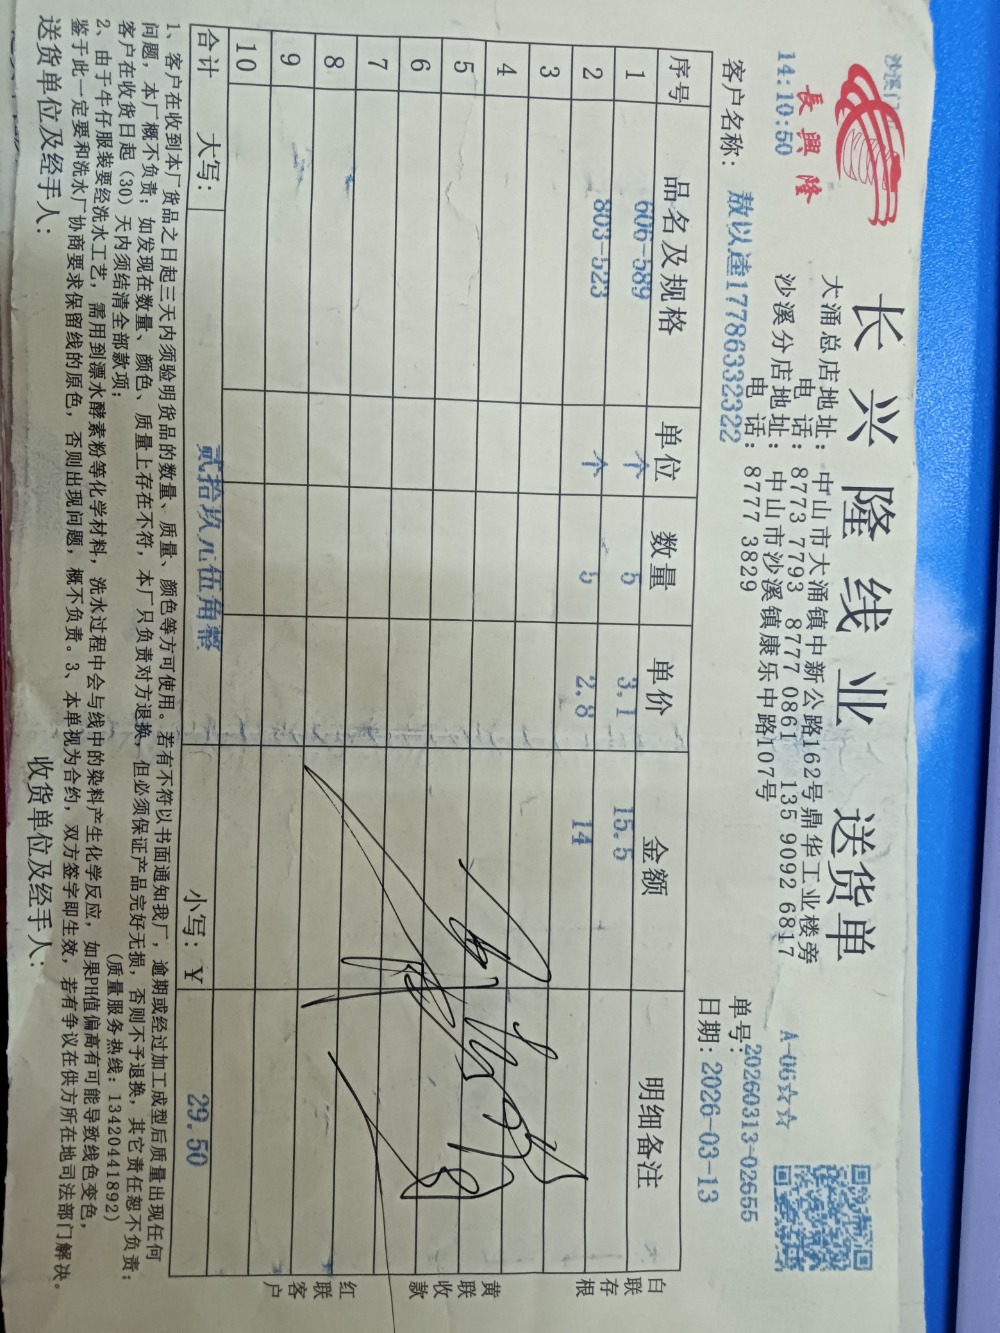 長興隆
14:10:50
长兴隆线业 送货单
A-06☆☆
大涌总店地址:中山市大涌镇中新公路162号鼎华工业楼旁
电 话:8773 7793 8777 0861 135 9092 6817
沙溪分店地址:中山市沙溪镇康乐中路107号
电 话:8777 3829
单号:20260313-02655
客户名称:敖以逵17786332322
日期:2026-03-13
序号 品名及规格 单位 数量 单价 金额 明细备注
1 606-589 个 5 3.1 15.5
2 803-523 个 5 2.8 14
3
4
5
6
7
8
9
10
合计 大写: 贰拾玖元伍角整 小写:¥ 29.50
白联存根
黄联收款
红联客户
1、客户在收到本厂货品之日起三天内须验明货品的数量、质量、颜色等方可使用。若有不符以书面通知我厂,逾期或经过加工成型后质量出现任何
问题,本厂概不负责;如发现在数量、颜色、质量上存在不符,本厂只负责对方退换,但必须保证产品完好无损,否则不予退换,其它责任恕不负责;
客户在收货日起(30)天内须结清全部款项; (质量服务热线:13420441892)
2、由于牛仔服装要经洗水工艺,需用到漂水酵素粉等化学材料,洗水过程中会与线中的染料产生化学反应,如果PH值偏高有可能导致线色变色,
鉴于此一定要和洗水厂协商要求保留线的原色,否则出现问题,概不负责。3、本单视为合约,双方签字即生效,若有争议在供方所在地司法部门解决。
送货单位及经手人: 收货单位及经手人: